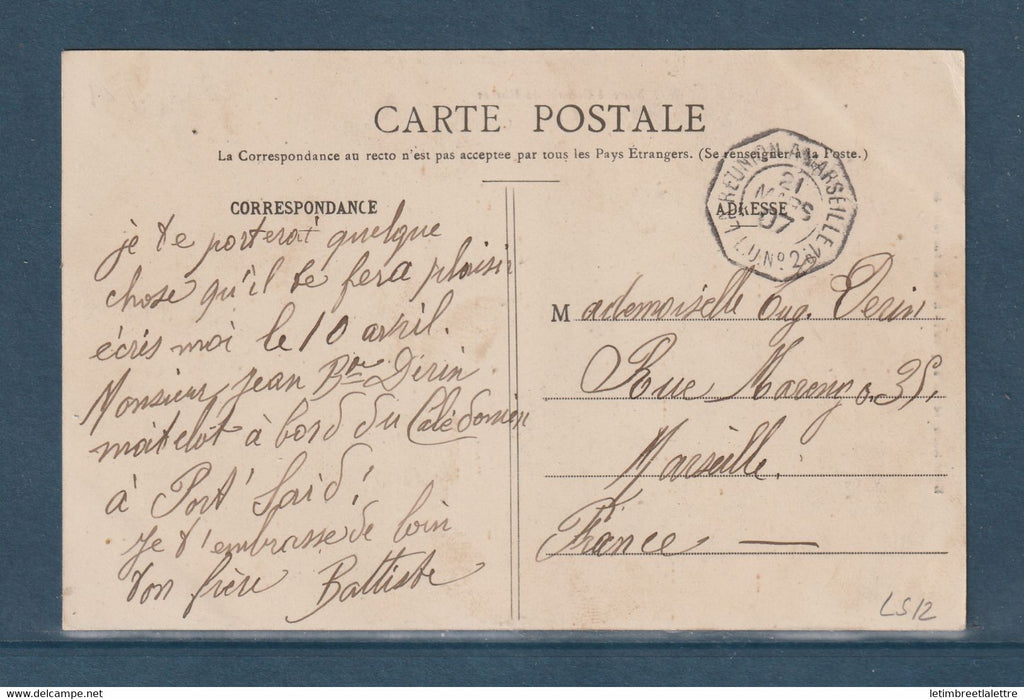 CARTE POSTALE
La Correspondance au recto n'est pas acceptee par tous les Pays Étrangers. (Se renseigner à la Poste.)
CORRESPONDANCE
je te porterai quelque
chose qu'il te fera plaisir
écris moi le 10 avril.
Monsieur Jean Bte Dérin
matelot à bord du Calédonien
à Port Saïd!
Je t'embrasse de loin
ton frère Battiste
ADRESSE
LA REUNION A MARSEILLE
21
MARS
07
L.U.Nº2
Mademoiselle Aug. Derin
Rue Marengo. 35,
Marseille.
France —
LS12
delcampe.net
letimbreetlalettre